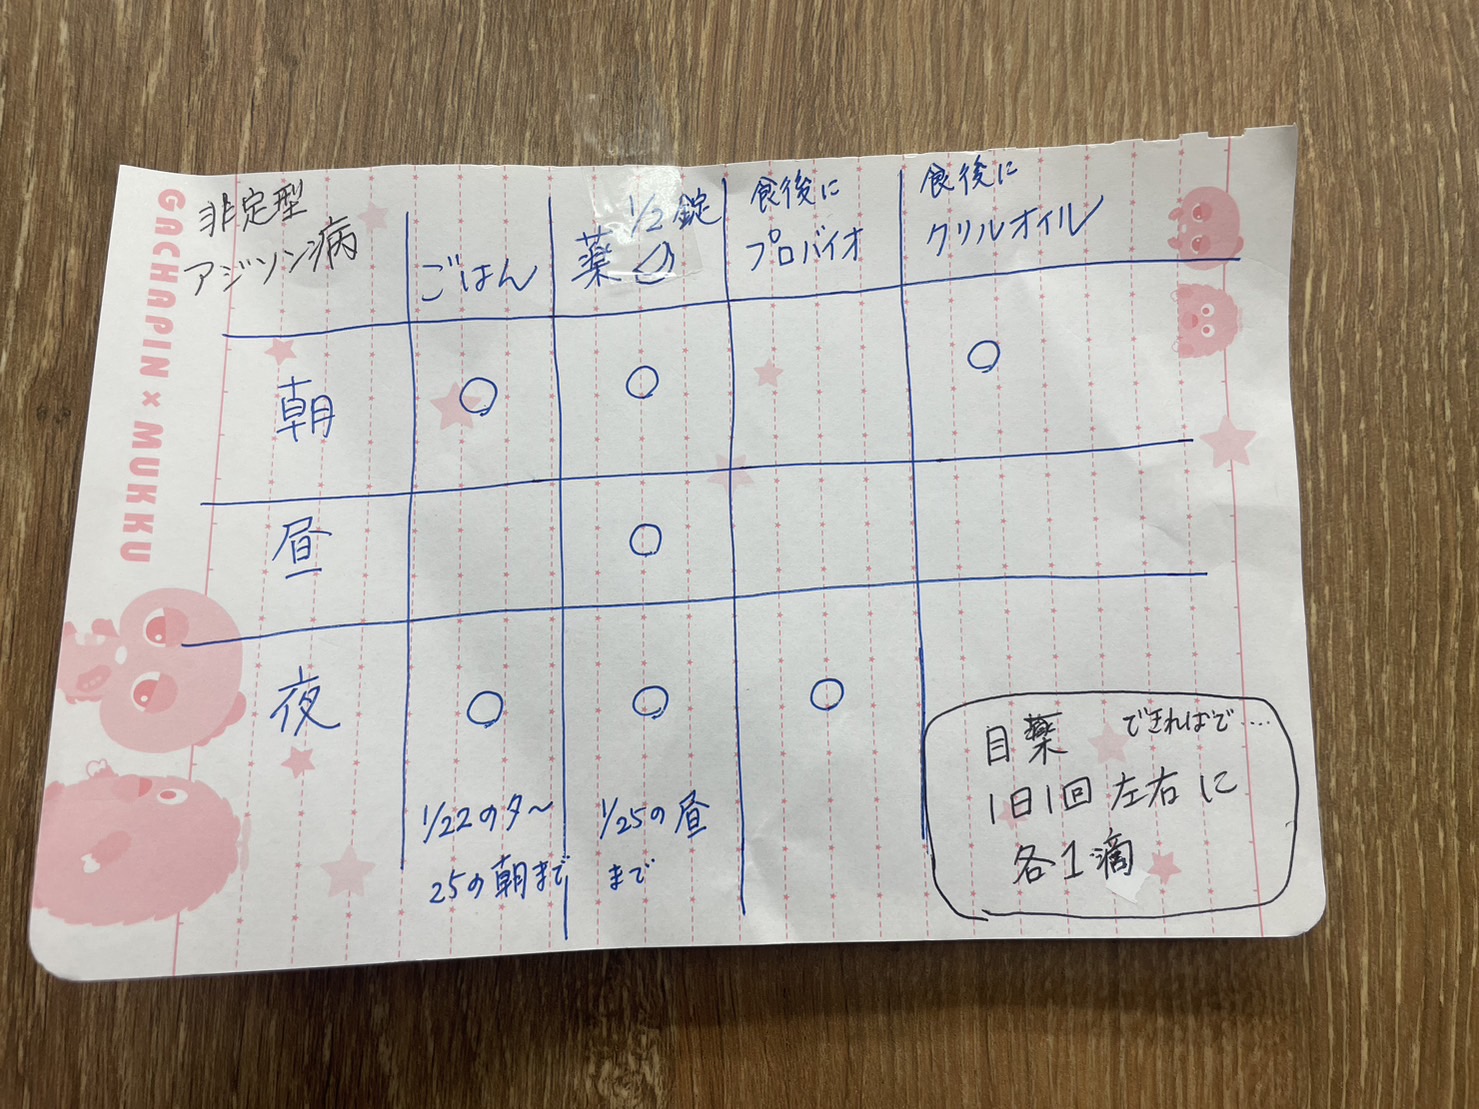 GACHAPIN × MUKKU
非定型
アジソン病
ごはん
薬 1/2錠
食後に
プロバイオ
食後に
クリルオイル
朝 ○ ○ ○
昼 ○
夜 ○ ○ ○
1/22の夕〜
25の朝まで
1/25の昼
まで
目薬 できればで....
1日1回 左右に
各1滴